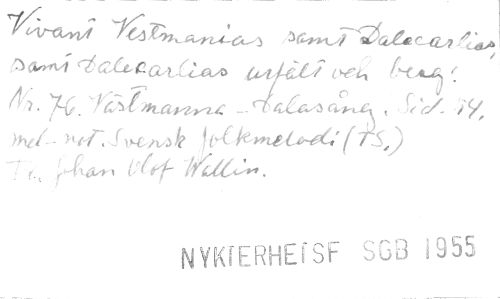 Vivant Vestmanias samt Dalecarlias,
samt Dalecarlias urfält och berg!
Nr. 76. Västmanna-Dalasång. Sid. 44,
mel-not. Svensk folkmelodi (TS.)
T.: Johan Olof Wallin.
NYKTERHETSF SGB 1955